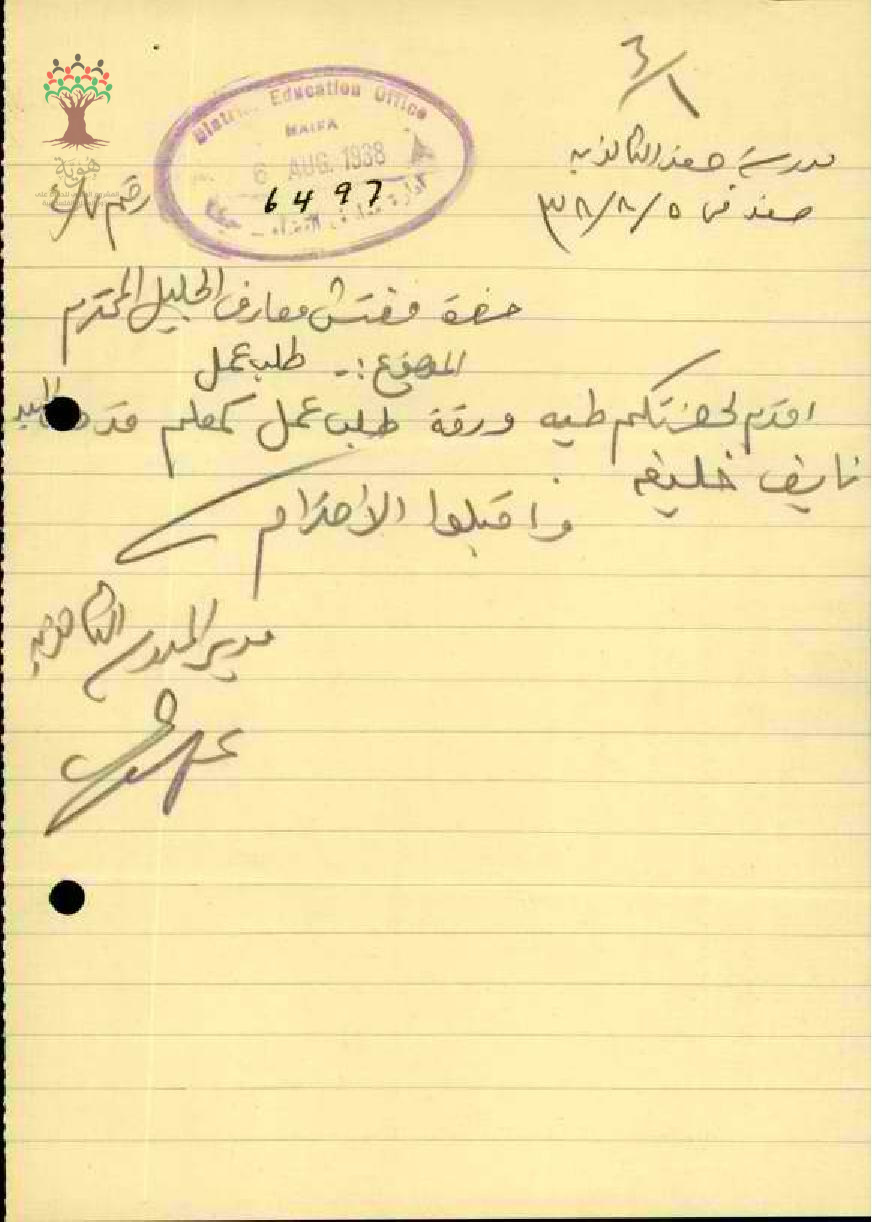 ٣/١
District Education Office
HAIFA
6 AUG. 1938
6497
هوية
مدرسة صفد الثانوية
صفد في ٥/٨/٣٨
رقم ٤/٧
حضرة مفتش معارف الجليل المحترم
الموضوع :- طلب عمل
اقدم لحضرتكم طيه ورقة طلب عمل كمعلم قدمها السيد
نايف خليفه
واقبلوا الاحترام
مدير المدرسة الثانوية